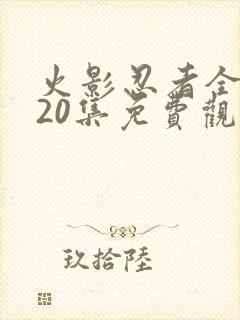 火影忍者全
20集免費觀
玖拾陸